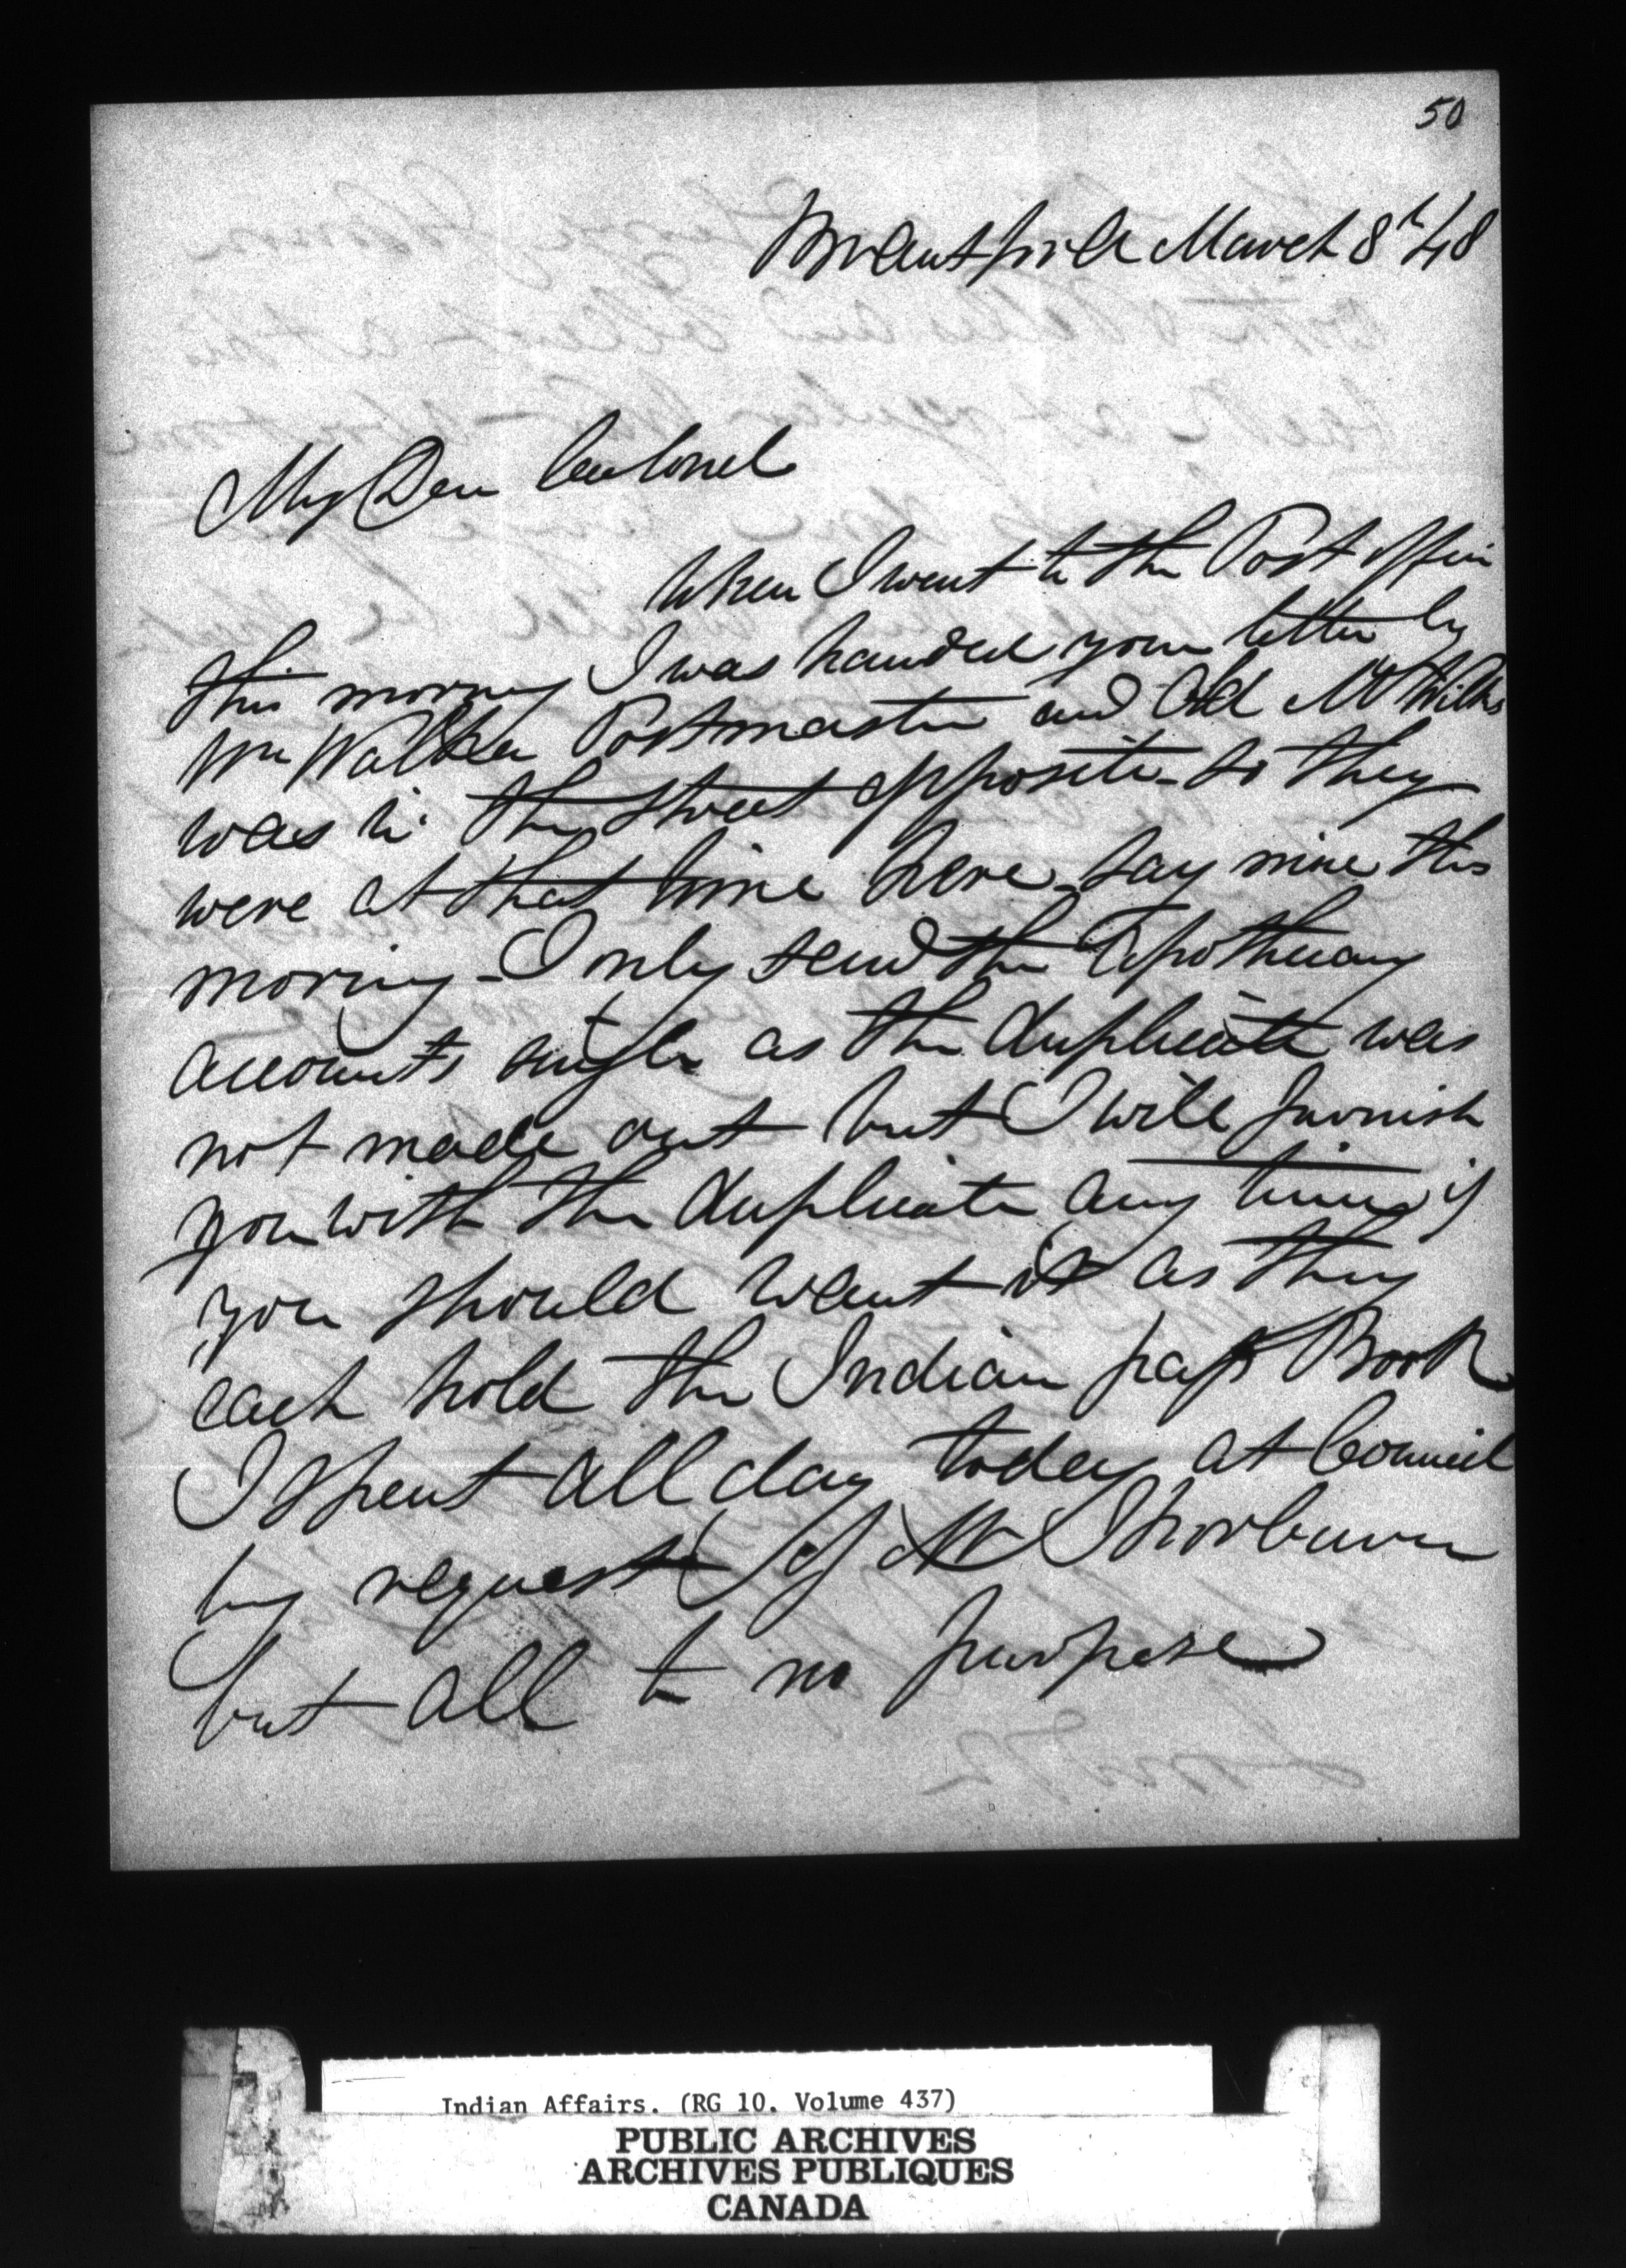 50
Brantford March 8th/48
My Dear Colonel
When I went to the Post office
this morning I was handed your letter by
Wm Walker Postmaster and Old Mr Wilkes
was in the street opposite so they
were at that time here say nine this
morning - I only send the Apothecary
accounts single as the duplicate was
not made out but I will furnish
you with the duplicate any time if
you should want it as they
each hold the Indian pass Book
I spent all day today at Council
by request of Mr Thorburn
but all to no purpose
Indian Affairs. (RG 10. Volume 437)
PUBLIC ARCHIVES
ARCHIVES PUBLIQUES
CANADA